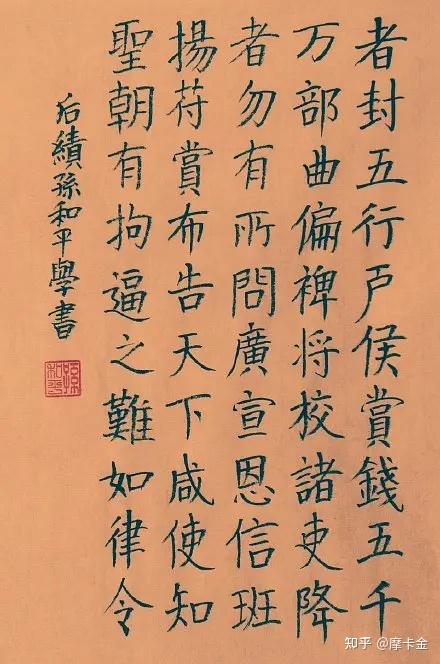 者封五行户侯賞錢五千
万部曲偏裨将校諸吏降
者勿有所問廣宣恩信班
揚苻賞布告天下咸使知
聖朝有拘逼之難如律令
后績孫和平學書
知乎 @摩卡金